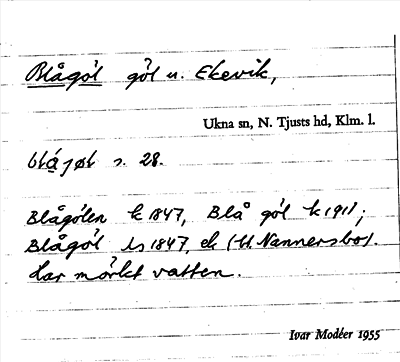 Blågöl göl u. Ekevik,
Ukna sn, N. Tjusts hd, Klm. l.
s. 28.
Blågölen k 1847, Blå göl k 1911;
Blågöl ls 1847, ek (tl Nannersbo).
har mörkt vatten.
Ivar Modéer 1955